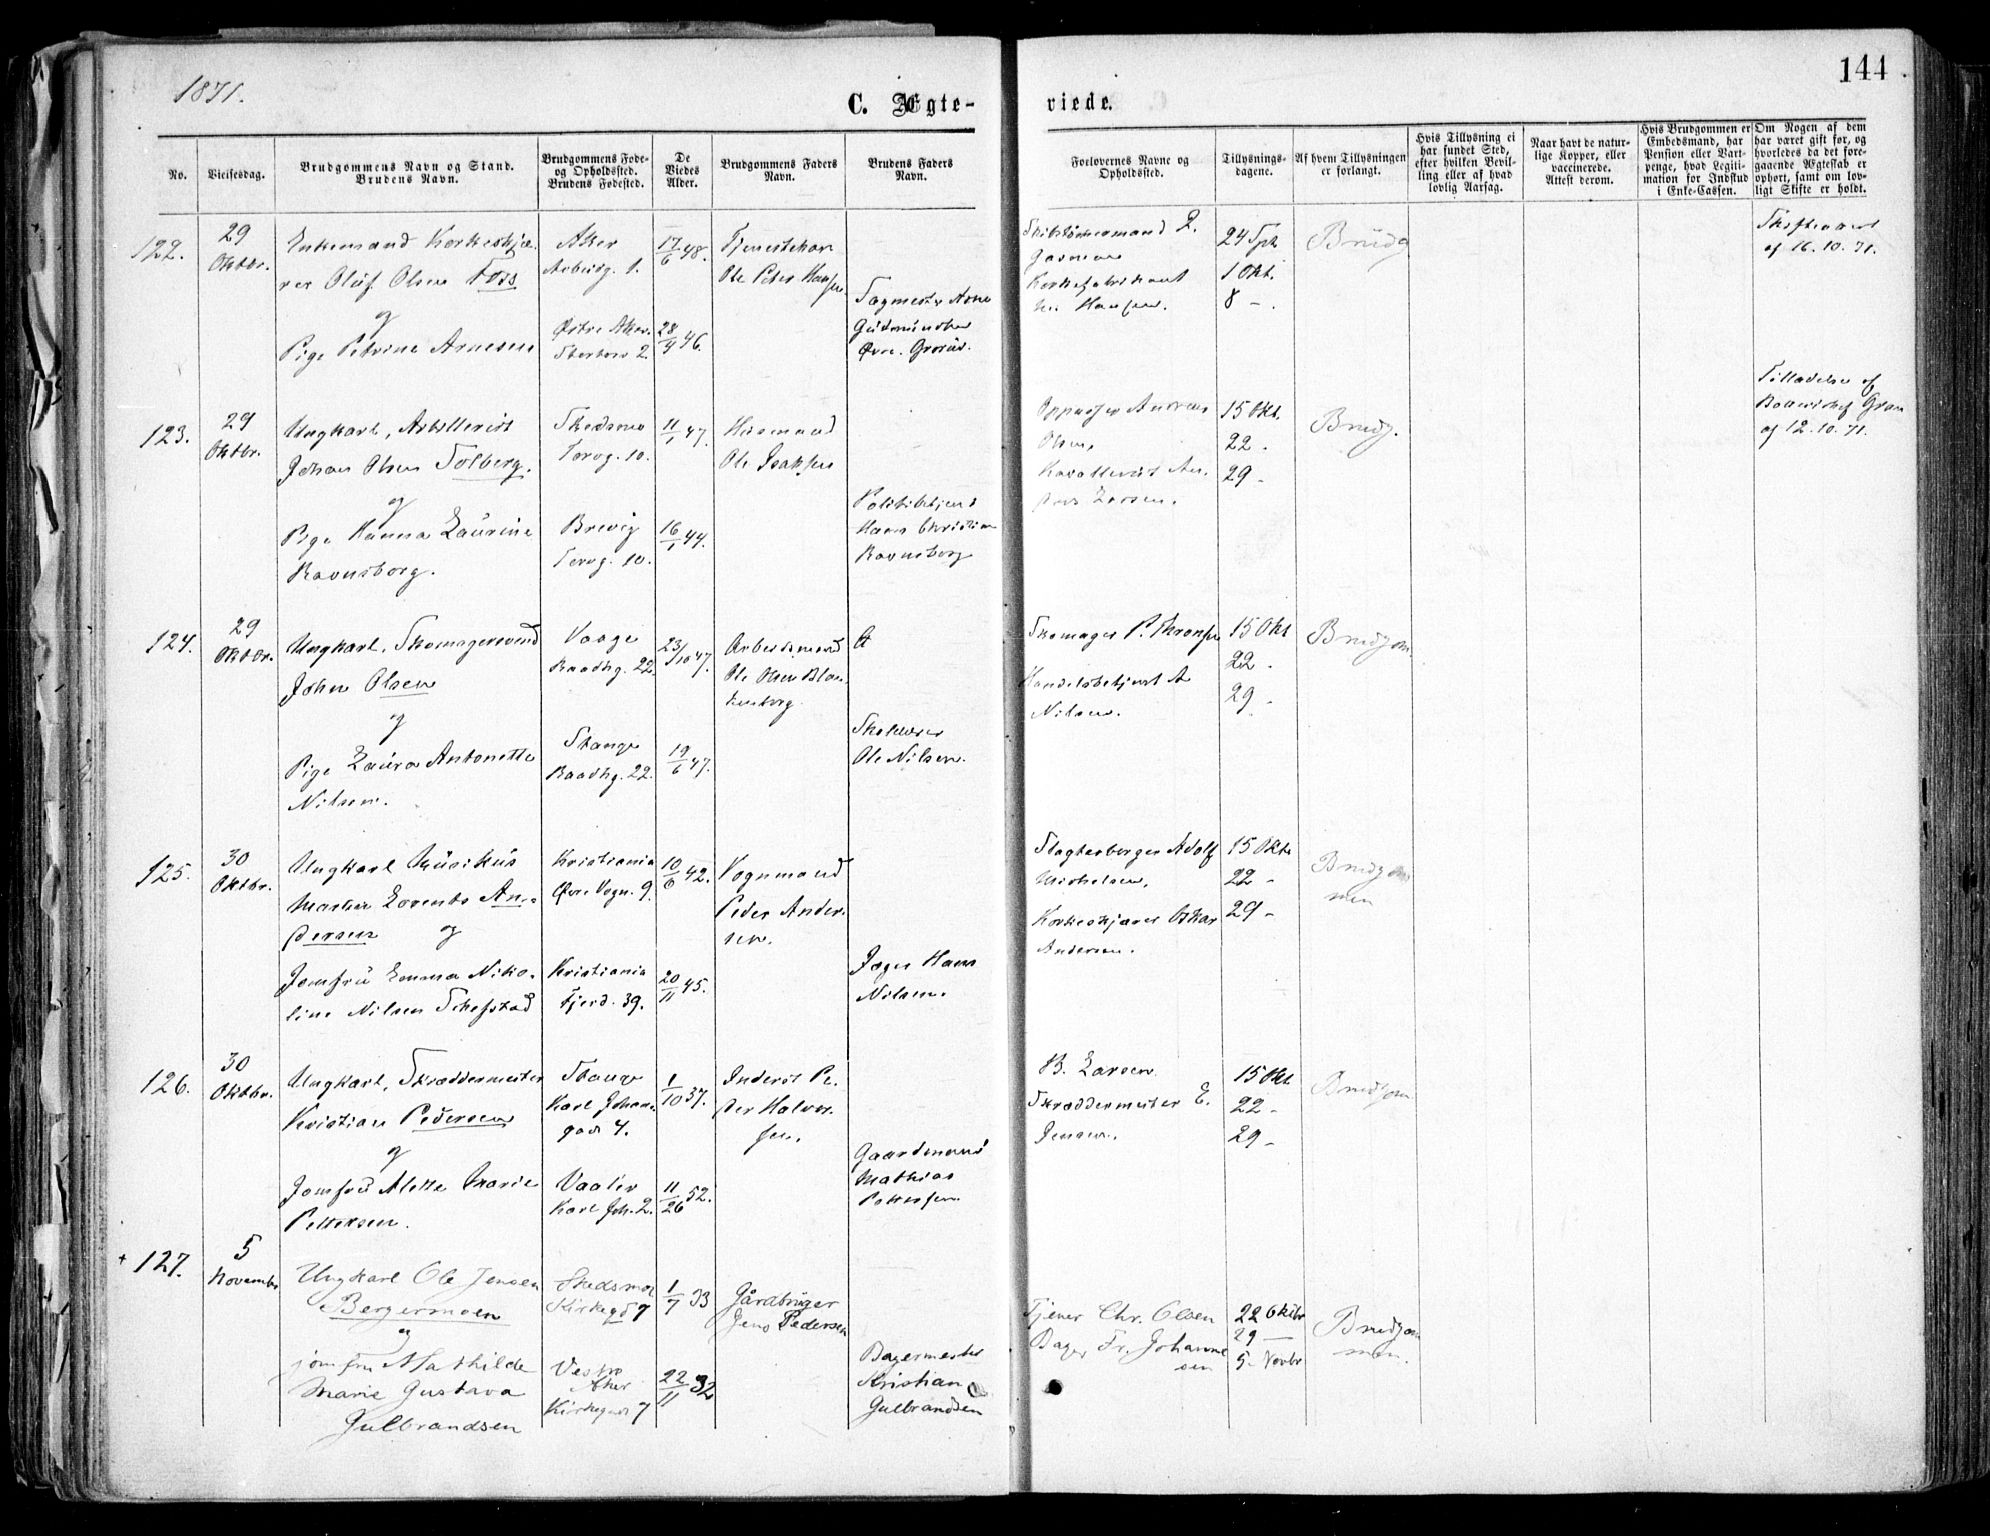 1871.
144
C. Ægte-
viede.
No.
Vielsesdag.
Brudgommens Navn og Stand.
Brudens Navn.
Brudgommens Fode-
og Opholdssted.
Brudens Fodested.
De
Viedes
Alder.
Brudgommens Faders
Navn.
Brudens Faders
Navn.
Forlovernes Navne og
Opholdssted.
Tillysnings-
dagene.
Af hvem Tillysningen
er forlangt.
Hvis Tillysning ei
har fundet Sted,
efter hvilken Bevil-
ling eller af hvad
lovlig Aarsag.
Naar havt de natur-
lige Kopper, eller
vaccinerede.
Attest derom.
Hvis Brudgommen er
Embedsmand, har
Pension eller Vart-
penge, hvad Legiti-
mation for Indskud
i Enke-Cassen.
Om Nogen af dem
har været gift før, og
hvorledes da det fore-
gaaende Ægteskab er
ophørt, samt om lov-
ligt Skifte er holdt.
122.
29
Oktbr.
Enkemand Korkeskjæ-
rer Oluf Olsen Foss
og
Pige Petrine Arnesen
Aker
Arbeidg. 1.
Østre Aker.
Storkors 2.
17/6 48.
28/9 46.
Tjenestekar
Ole Peter Hansen
Sagmester Arne
Gudmundsen
Øvre. Grorud.
Skibstømmermand P.
Korkefabrikant
Hansen.
24 Spt.
1 Okt.
8 -.
Brudg
Skifteattest
af 16.10.71.
123.
29
Oktbr.
Ungkarl, Artillerist
Johan Olsen Solberg.
og
Pige Hanna Laurine
Ravnsborg.
Skedsmo
Torvg. 10.
Brevig
Torvg. 10.
11/1 47.
16/1 44.
Husmand
Ole Isaksen
Politibetjent
Hans Christian
Ravnsborg
Oppasser Andreas
Olsen,
Kavallerist An-
ders Larsen.
15 Okt.
22 -
29 -
Brudg.
Tilladelse af
Batterichef Gran
af 12.10.71.
124.
29
Oktbr.
Ungkarl, Skomagersvend
John Olsen
og
Pige Laura Antonette
Nilsen.
Vaage
Raadhg. 22.
Stange
Raadhg. 22.
23/10 47.
19/6 47.
Arbeidsmand
Ole Olsen Blan
kenborg.
Skolelærer
Ole Nilsen.
Skomager P. Thronsen
Handelsbetjent A
Nilsen.
15 Okt
22 -
29 -
Brudgom.
125.
30
Oktbr.
Ungkarl Musikus
Martin Lorents An-
dersen og
Jomfru Emma Niko-
line Nilsen Skefstad
Kristiania
Øvre Vogn. 9.
Kristiania
Fjerd. 39.
10/6 42.
20/11 45.
Vognmand
Peder Ander-
sen.
Jæger Hans
Nilsen.
Slagterborger Adolf
Michelsen,
Korkeskjærer Oskar
Andersen.
15 Okt.
22 -
29 -
Brudgom
men
126.
30
Oktbr.
Ungkarl, Skræddermester
Kristian Pedersen
og
Jomfru Alette Marie
Pettersen.
Stange
Karl Johans
gade 4.
Vaaler
Karl Joh. 2.
1/10 37.
11/26 52.
Inderst Pe-
der Halvor-
sen.
Gaardmand
Mathias
Pettersen.
B. Larsen
Skræddermester E.
Jensen.
15 Okt.
22 -
29 -
Brudgom
+ 127.
5
Novembr
Ungkarl Ole Jensen
Bergermoen
og
jomfru Mathilde
Marie Gustava
Gulbrandsen
Skedsmo
Kirkegd 7
Vestre
Aker
Kirkegad 7
1/7 33
22/11 32
Gårdbruger
Jens Pedersen
Bagermester
Kristian
Gulbrandsen
Tjener Chr. Olsen
Bager Fr. Johanne
sen
22 Oktbr
29 -
5 - Novbr
Brudgom
men.